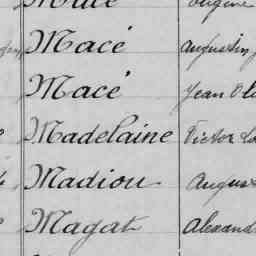 Macé Eugène
Macé Augustin
Macé Jean
Madelaine Victor
Madiou August
Magat Alexand